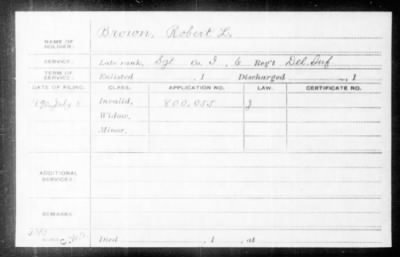 NAME OF SOLDIER: Brown, Robert L.
SERVICE: Late rank, Sgt Co. I, 6 Reg't Del. Inf
TERM OF SERVICE: Enlisted , 1 Discharged , 1
DATE OF FILING. CLASS. APPLICATION NO. LAW. CERTIFICATE NO.
July Invalid, 800.055 J
Widow,
Minor,
ADDITIONAL SERVICES:
REMARKS:
Died , 1 , at